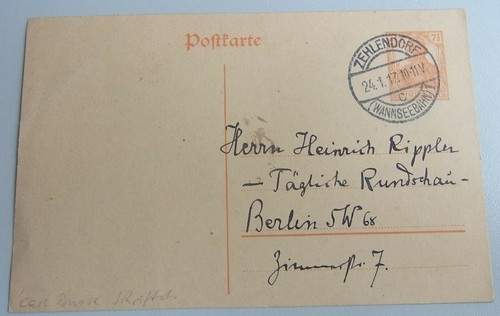 Postkarte
7½
ZEHLENDORF
24.1.17.10-11V.
c
(WANNSEEBAHN)
Herrn Heinrich Rippler
— Tägliche Rundschau -
Berlin SW 68
Zimmerstr. 7.